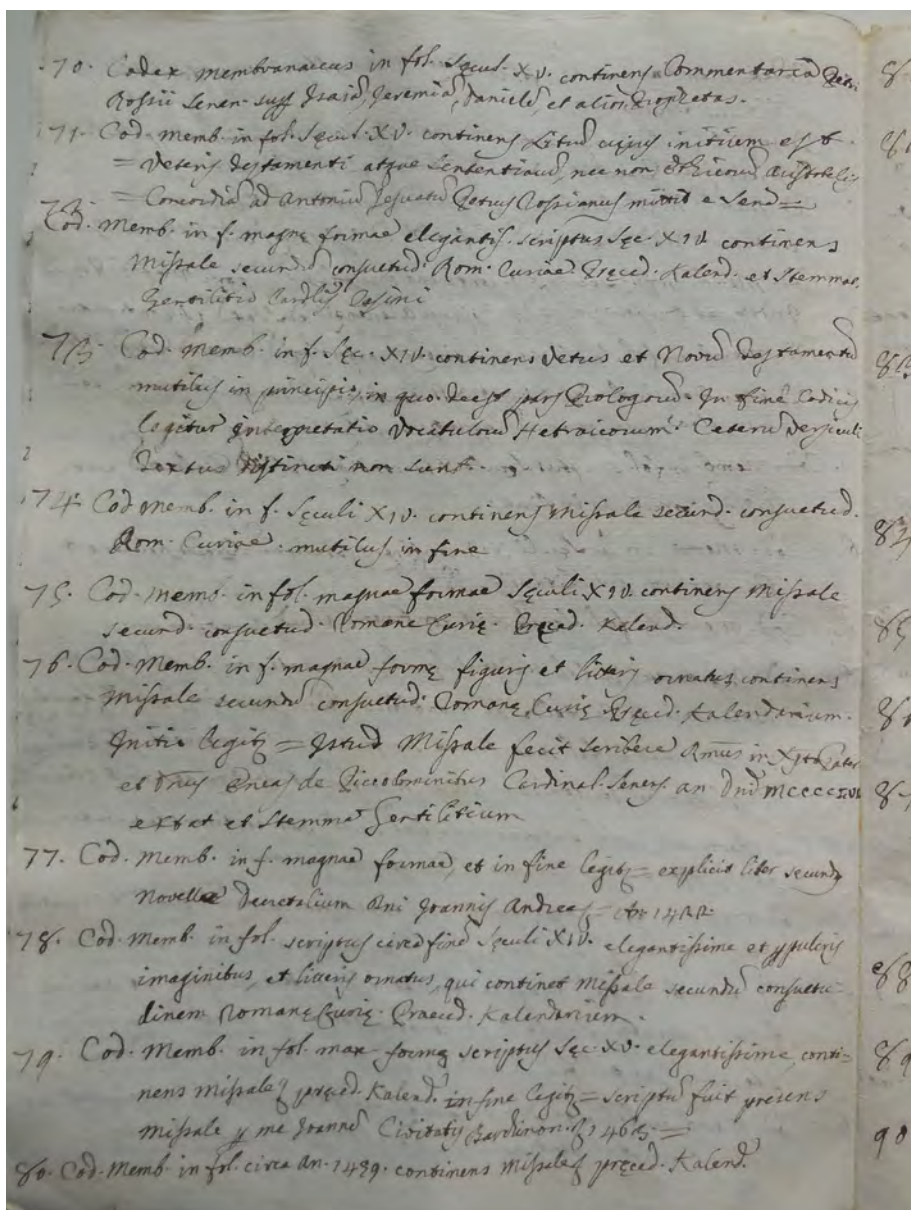 70. Codex membranaceus in fol. Sęcul. XV. continens Commentaria Petri
Rossii Senen. sup Isaiã, Jeremiã, Danielẽ, et alios Prophetas.
71. Cod. memb. in fol. Sęcul. XV. continens librũ cujus initium est
= Veteris Testamenti atque Sententiarũ, nec non Ethicorũ Aristotelis
= Concordiã ad Antoniũ Jesuatũ Petrus Rossianus mittit e Senã =
72. Cod. Memb. in f. magnę formae elegantis. scriptus Sęc. XIV. continens
Missale secundũ consuetud. Rom. Curiae. Pręced. Kalend. et Stemmate
Gentilitio Cardlis Casini
73. Cod. Memb. in f. Sęc. XIV. continens Vetus et Novũ Testamentũ
mutilus in principio, in quo deest pars Prologorũ. In fine Codicis
legitur Interpretatio Vocabulorũ Hebraicorum. Ceterũ Versiculi
Textus distincti non sunt.
74. Cod memb. in f. Sęculi XIV. continens Missale secund. consuetud.
Rom. Curiae. mutilus in fine
75. Cod. memb. in fol. magnae formae Sęculi XIV. continens Missale
secund. consuetud. Romanę Curię. Pręced. Kalend.
76. Cod. Memb. in f. magnae formę figuris et litteris ornatus continens
Missale secundũ consuetud. Romanę Curię. Pręced. Kalendarium.
Initio legitz = Istud Missale fecit scribere Rmus in Xpto Pater
et Dnus Eneas de Piccolominibus Cardinal. Senens. an. Dni
extat et Stemma Gentilitium
77. Cod. Memb. in f. magnae formae, et in fine legitz = explicit liber secundus
Novellae Decretalium Dni Joannis Andreę =
78. Cod. Memb. in fol. scriptus circa finẽ Sęculi XIV. elegantissime et pulcris
imaginibus, et litteris ornatus, qui continet Missale secundũ consuetu-
dinem Romanę Curię. Praeced. Kalendarium.
79. Cod. Memb. in fol. max formę scriptus Sęc. XV. elegantissime, conti-
nens missale pręced. Kalend. in fine legitz = scriptũ fuit presens
missale p me Joannẽ Civitatis 1463. =
80. Cod. Memb. in fol. circa an. 1489. continens missale pręced. Kalend.